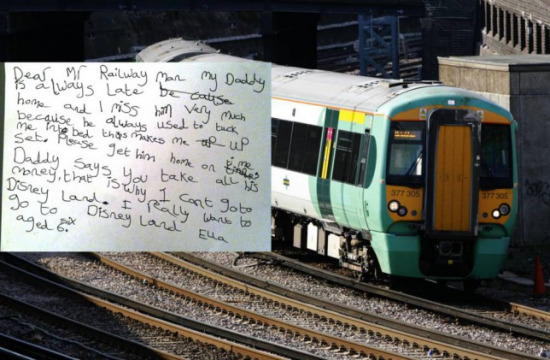 Dear Mr Railway man my Daddy
is always Late be cause
home and I miss him very much
because he always used to tuck
me into bed this makes me up-
set. Please get him home on time
Daddy Says you take all his
money, that is why I cant go to
Disney Land. I really want to
go to Disney Land
aged 6. six Ella
377 305
377 305